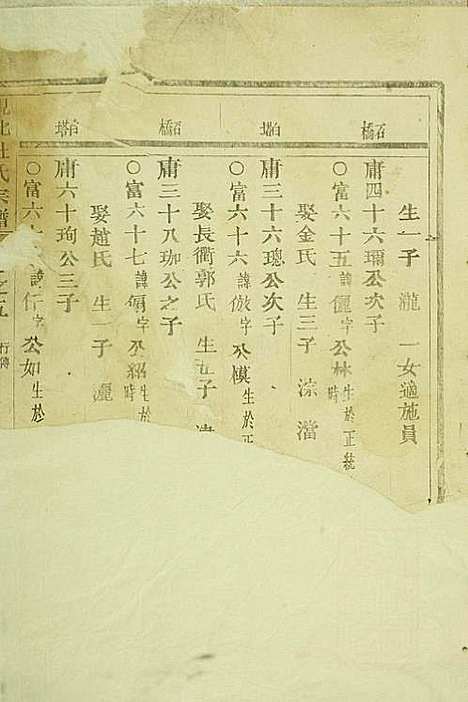 生一子 瀧 一女適施員
石橋
庸四十六璊公次子
○富六十五諱儷字公林生於正統時
娶金氏 生三子 淙 澢
白塔
庸三十六璁公次子
○富六十六諱倣字公模生於正
娶長衢郭氏 生五子
石橋
庸三十八珈公之子
○富六十七諱 字公紹生於 時
娶趙氏 生一子 灑
白塔
庸六十珣公三子
○富六十 諱 字公如生於
杜氏宗譜 行傳